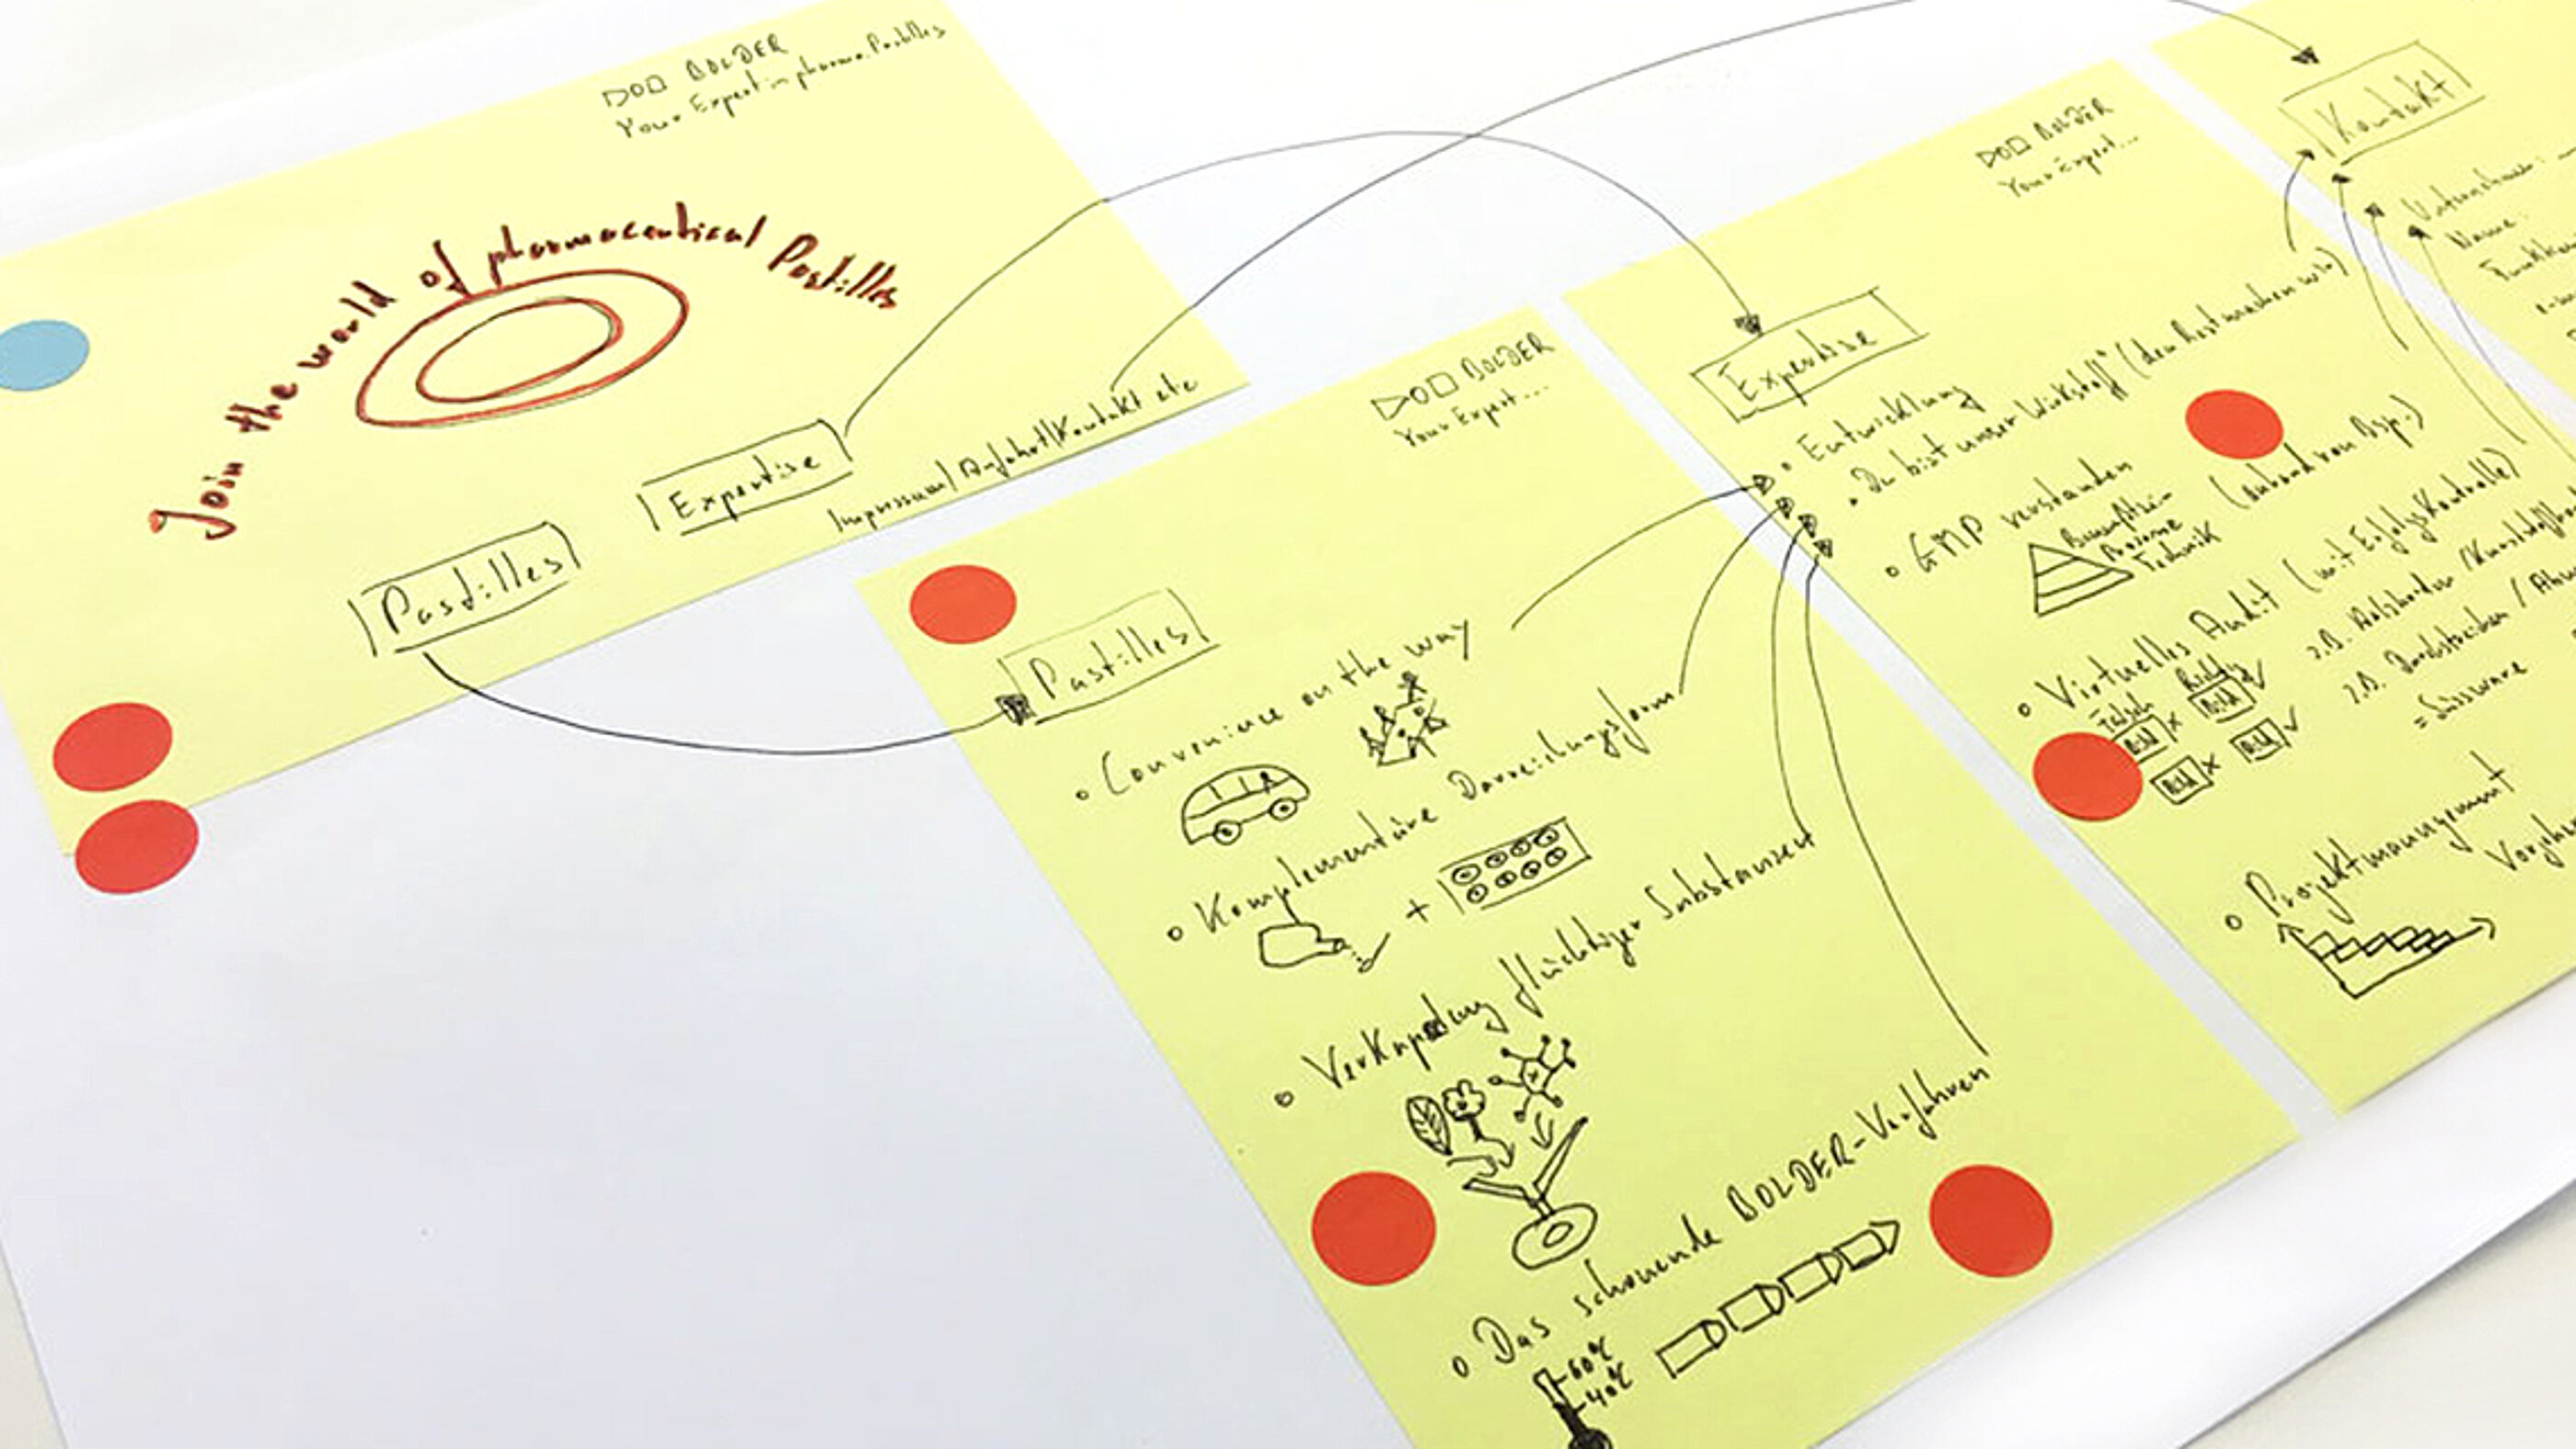 BOLDER
Your Expert in pharma. Pastilles
Join the world of pharmaceutical Pastilles
Pastilles
Expertise
Impressum/Anfahrt/Kontakt etc
BOLDER
Your Expert...
Pastilles
Convenience on the way
Komplementäre Darreichungsform
+
Verkapselung flüchtiger Substanzen
Das schonende BOLDER-Verfahren
60°C
40°C
BOLDER
Your Expert...
Expertise
Entwicklung
"Du bist unser Wirkstoff" (den Rest machen wir)
GMP verstanden (anhand von Bsp.)
Prozesse
Technik
Virtuelles Audit (mit Erfolgskontrolle)
Falsch Richtig
Bild x Bild ✓
Bild x Bild ✓
= Süssware
Projektmanagement
Kontakt
Unternehmen:
Name: